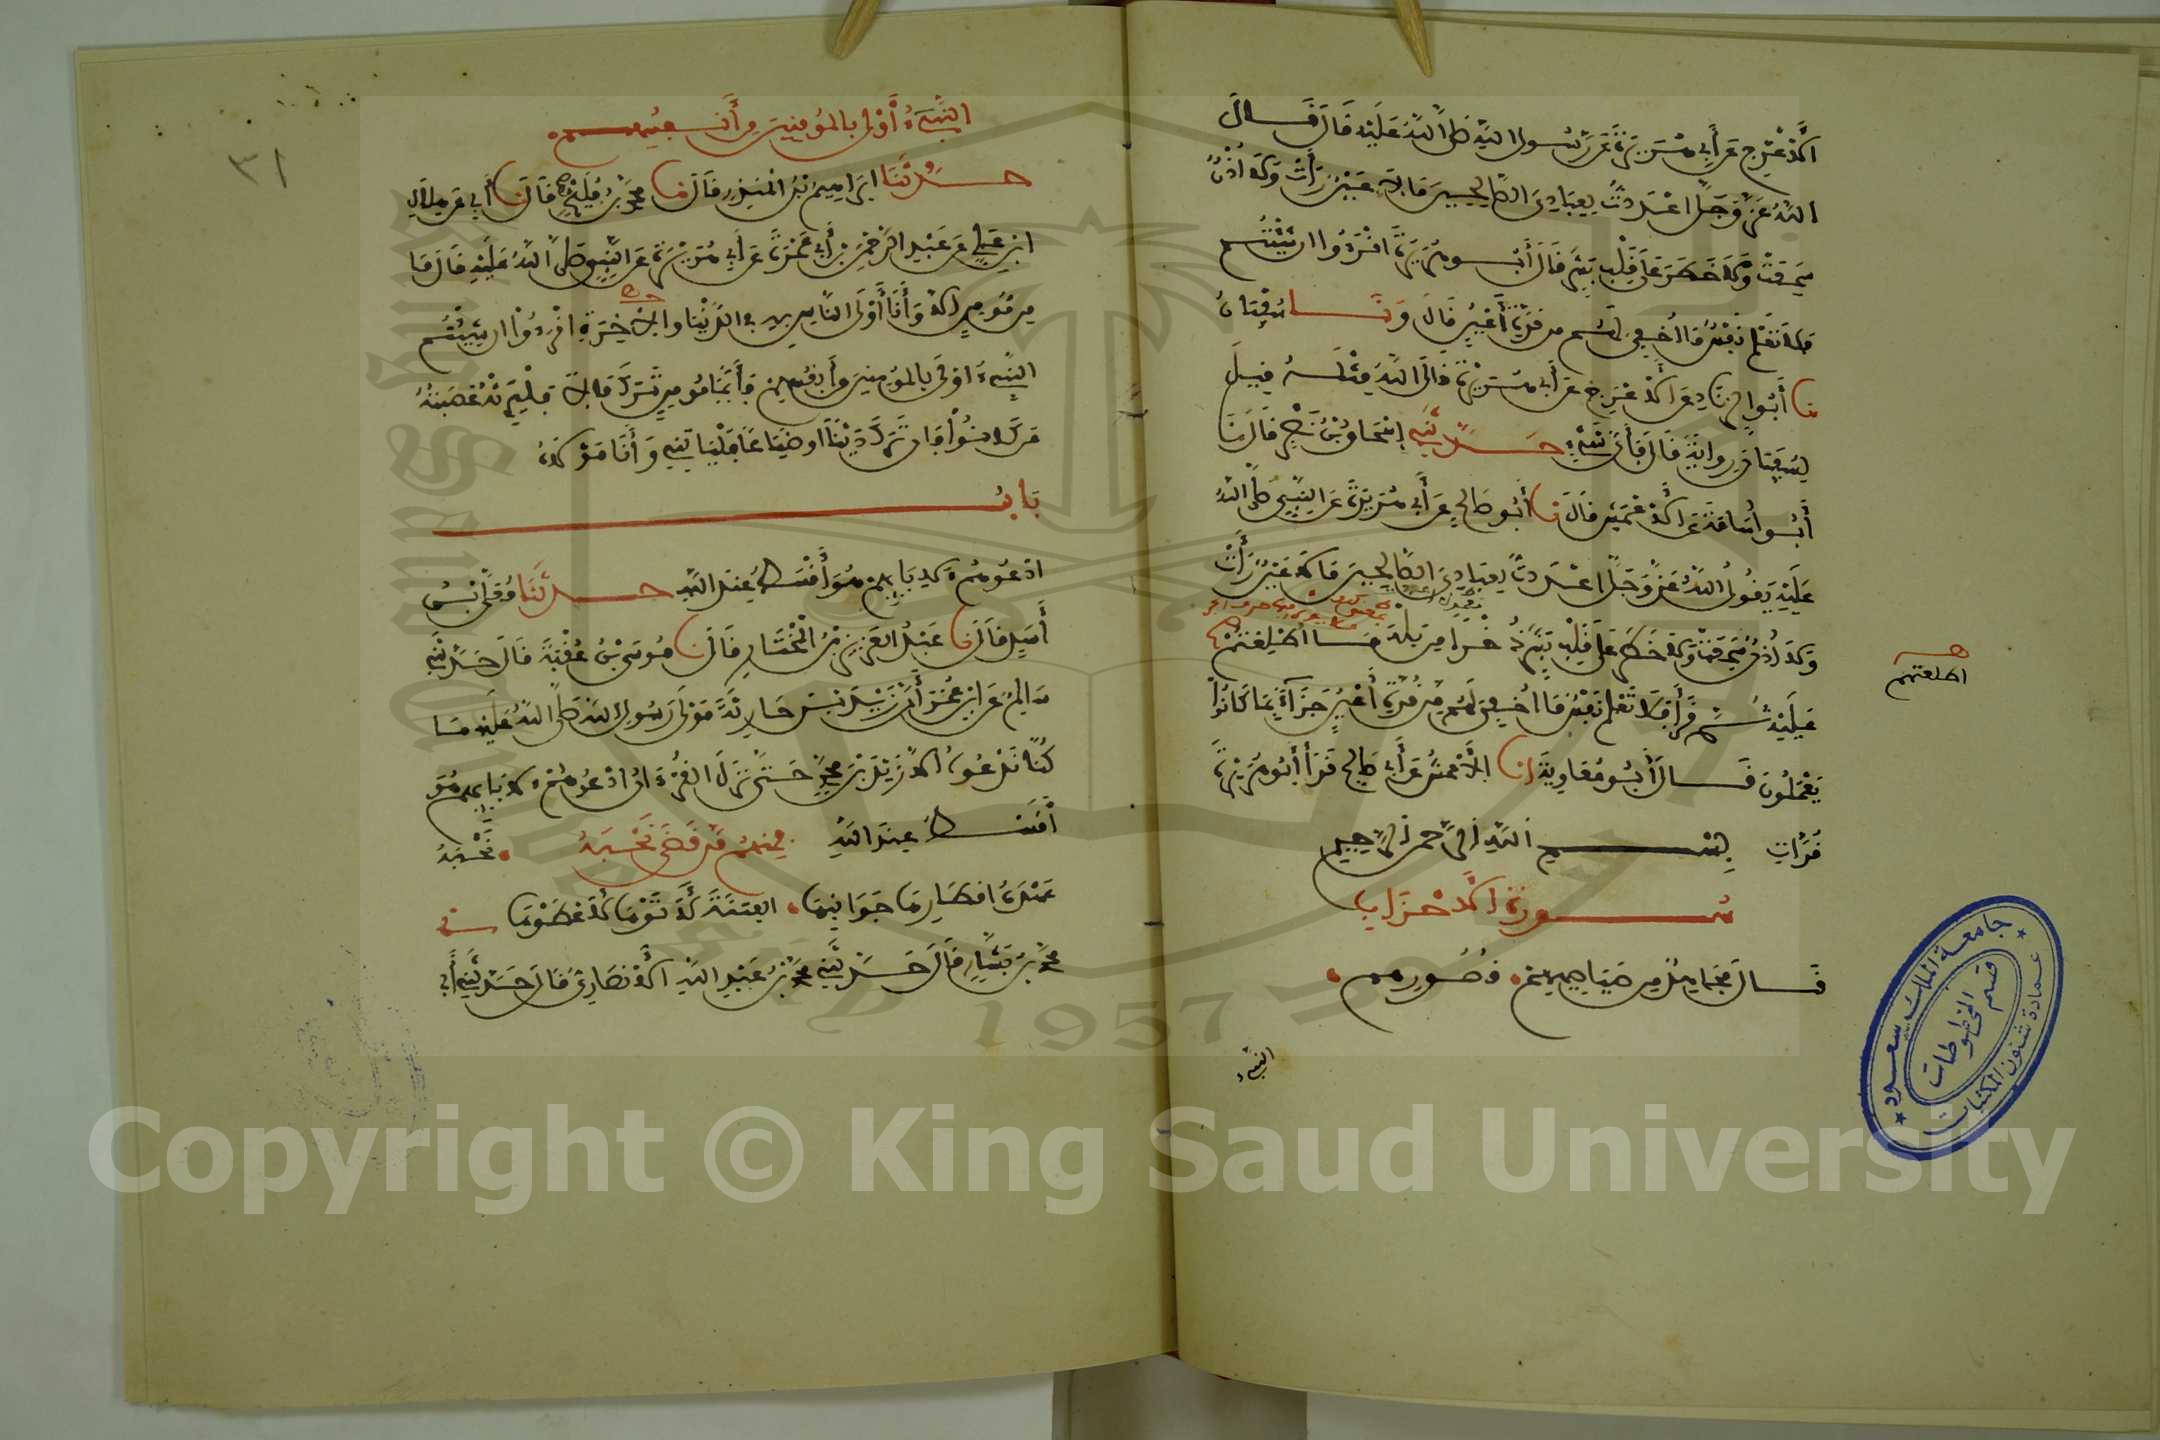 الأعرج عن أبي هريرة عن رسول الله صلى الله عليه قال قال
الله عز وجل اعددت لعبادي الصالحين ما لا عين رأت ولا أذن
سمعت ولا خطر على قلب بشر قال أبو هريرة اقرءوا ان شئتم
فلا تعلم نفس ما اخفي لهم من قرة أعين قال ونا سفين
نا أبو الزناد عن الأعرج عن أبي هريرة قال الله مثله قيل
لسفين رواية قال فأي شيء حدثني إسحاق بن نصر قال نا
أبو أسامة عن الأعمش قال نا أبو صالح عن أبي هريرة عن النبي صلى الله
عليه يقول الله عز وجل اعددت لعبادي الصالحين ما لا عين رأت
ولا أذن سمعت ولا خطر على قلب بشر ذخرا من بله ما اطلعتم
اطلعتهم
عليه ثم قرأ فلا تعلم نفس ما اخفي لهم من قرة أعين جزاء بما كانوا
يعملون قال أبو معاوية انا الأعمش عن أبي صالح قرأ أبو هريرة
قرات بسم الله الرحمن الرحيم
سورة الأحزاب
قال مجاهد من صياصيهم قصورهم
النبيء
٣١
النبيء أولى بالمؤمنين من أنفسهم
حدثنا ابراهيم بن المنذر قال نا محمد بن فليح قال نا أبي عن هلال
ابن علي عن عبد الرحمن بن أبي عمرة عن أبي هريرة عن النبي صلى الله عليه قال ما
من مومن الا وأنا أولى الناس به في الدنيا والاخرة اقرءوا ان شئتم
النبيء اولى بالمومنين من أنفسهم فأيما مومن ترك مالا فليرثه عصبته
من كانوا فان ترك دينا أو ضياعا فلياتني وأنا مولاه
باب
ادعوهم لابايهم هو أقسط عند الله حدثنا معلى بن
أسد قال نا عبد العزيز بن المختار قال نا موسى بن عقبة قال حدثني
سالم عن ابن عمر أن زيد بن حارثة مولى رسول الله صلى الله عليه ما
كنا ندعوه الا زيد بن محمد حتى نزل القرءان ادعوهم لابايهم هو
أقسط عند الله فمنهم من قضى نحبه نحبه
عهده اقطارها جوانبها الفتنة لأتوها لأعطوها نا
محمد بن بشار قال حدثني محمد بن عبد الله الأنصاري قال حدثني أبي
جامعة الملك سعود
قسم المخطوطات
عمادة شئون المكتبات
1957
Copyright © King Saud University